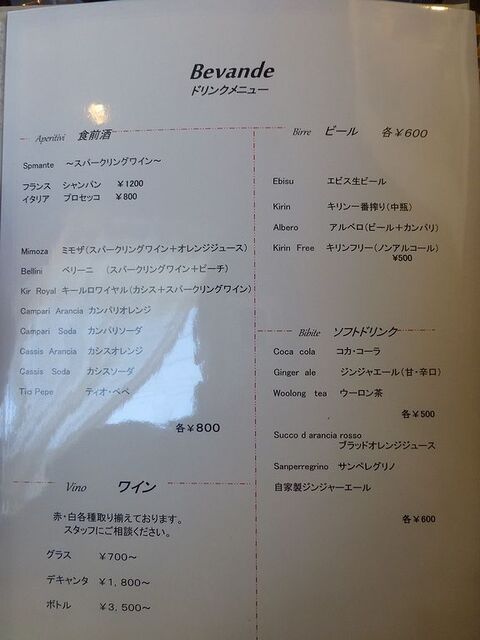 Bevande
ドリンクメニュー
Aperitivi 食前酒
Spmante ～スパークリングワイン～
フランス シャンパン ￥1200
イタリア プロセッコ ￥800
Mimoza ミモザ(スパークリングワイン＋オレンジジュース)
Bellini ベリーニ (スパークリングワイン＋ピーチ)
Kir Royal キールロワイヤル(カシス＋スパークリングワイン)
Campari Arancia カンパリオレンジ
Campari Soda カンパリソーダ
Cassis Arancia カシスオレンジ
Cassis Soda カシスソーダ
Tio Pepe ティオ・ペペ
各￥800
Vino ワイン
赤・白各種取り揃えております。
スタッフにご相談ください。
グラス ￥700～
デキャンタ ￥1,800～
ボトル ￥3,500～
Birre ビール 各￥600
Ebisu エビス生ビール
Kirin キリン一番搾り(中瓶)
Albero アルベロ(ビール＋カンパリ)
Kirin Free キリンフリー(ノンアルコール)
￥500
Bibite ソフトドリンク
Coca cola コカ・コーラ
Ginger ale ジンジャエール(甘・辛口)
Woolong tea ウーロン茶
各￥500
Succo d arancia rosso
ブラッドオレンジジュース
Sanperregrino サンペレグリノ
自家製ジンジャーエール
各￥600